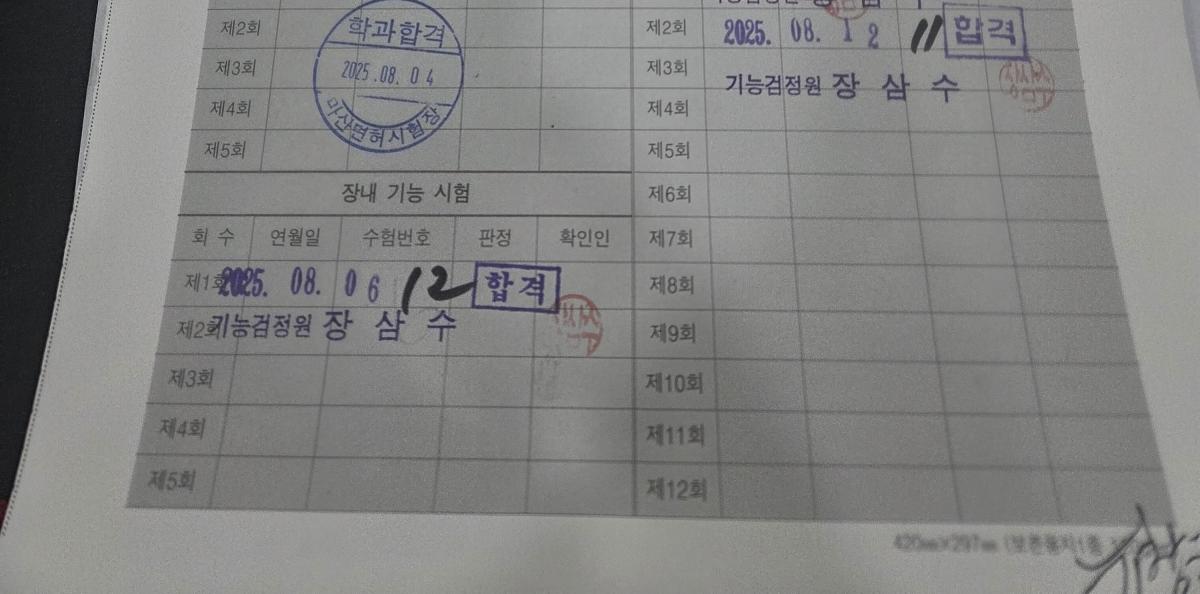 제2회
학과합격
제3회
2025.08.04
제4회
마산면허시험장
제5회
장내 기능 시험
회 수 연월일 수험번호 판정 확인인
제1회 2025. 08. 06 12 합격
제2회 기능검정원 장 삼 수
제3회
제4회
제5회
제2회 2025. 08. 12 11 합격
제3회
기능검정원 장 삼 수
제4회
제5회
제6회
제7회
제8회
제9회
제10회
제11회
제12회
420㎜×297㎜